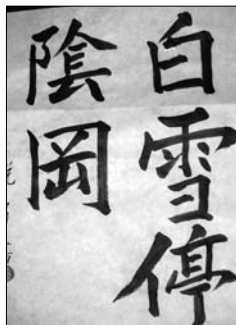 白雪停
陰岡